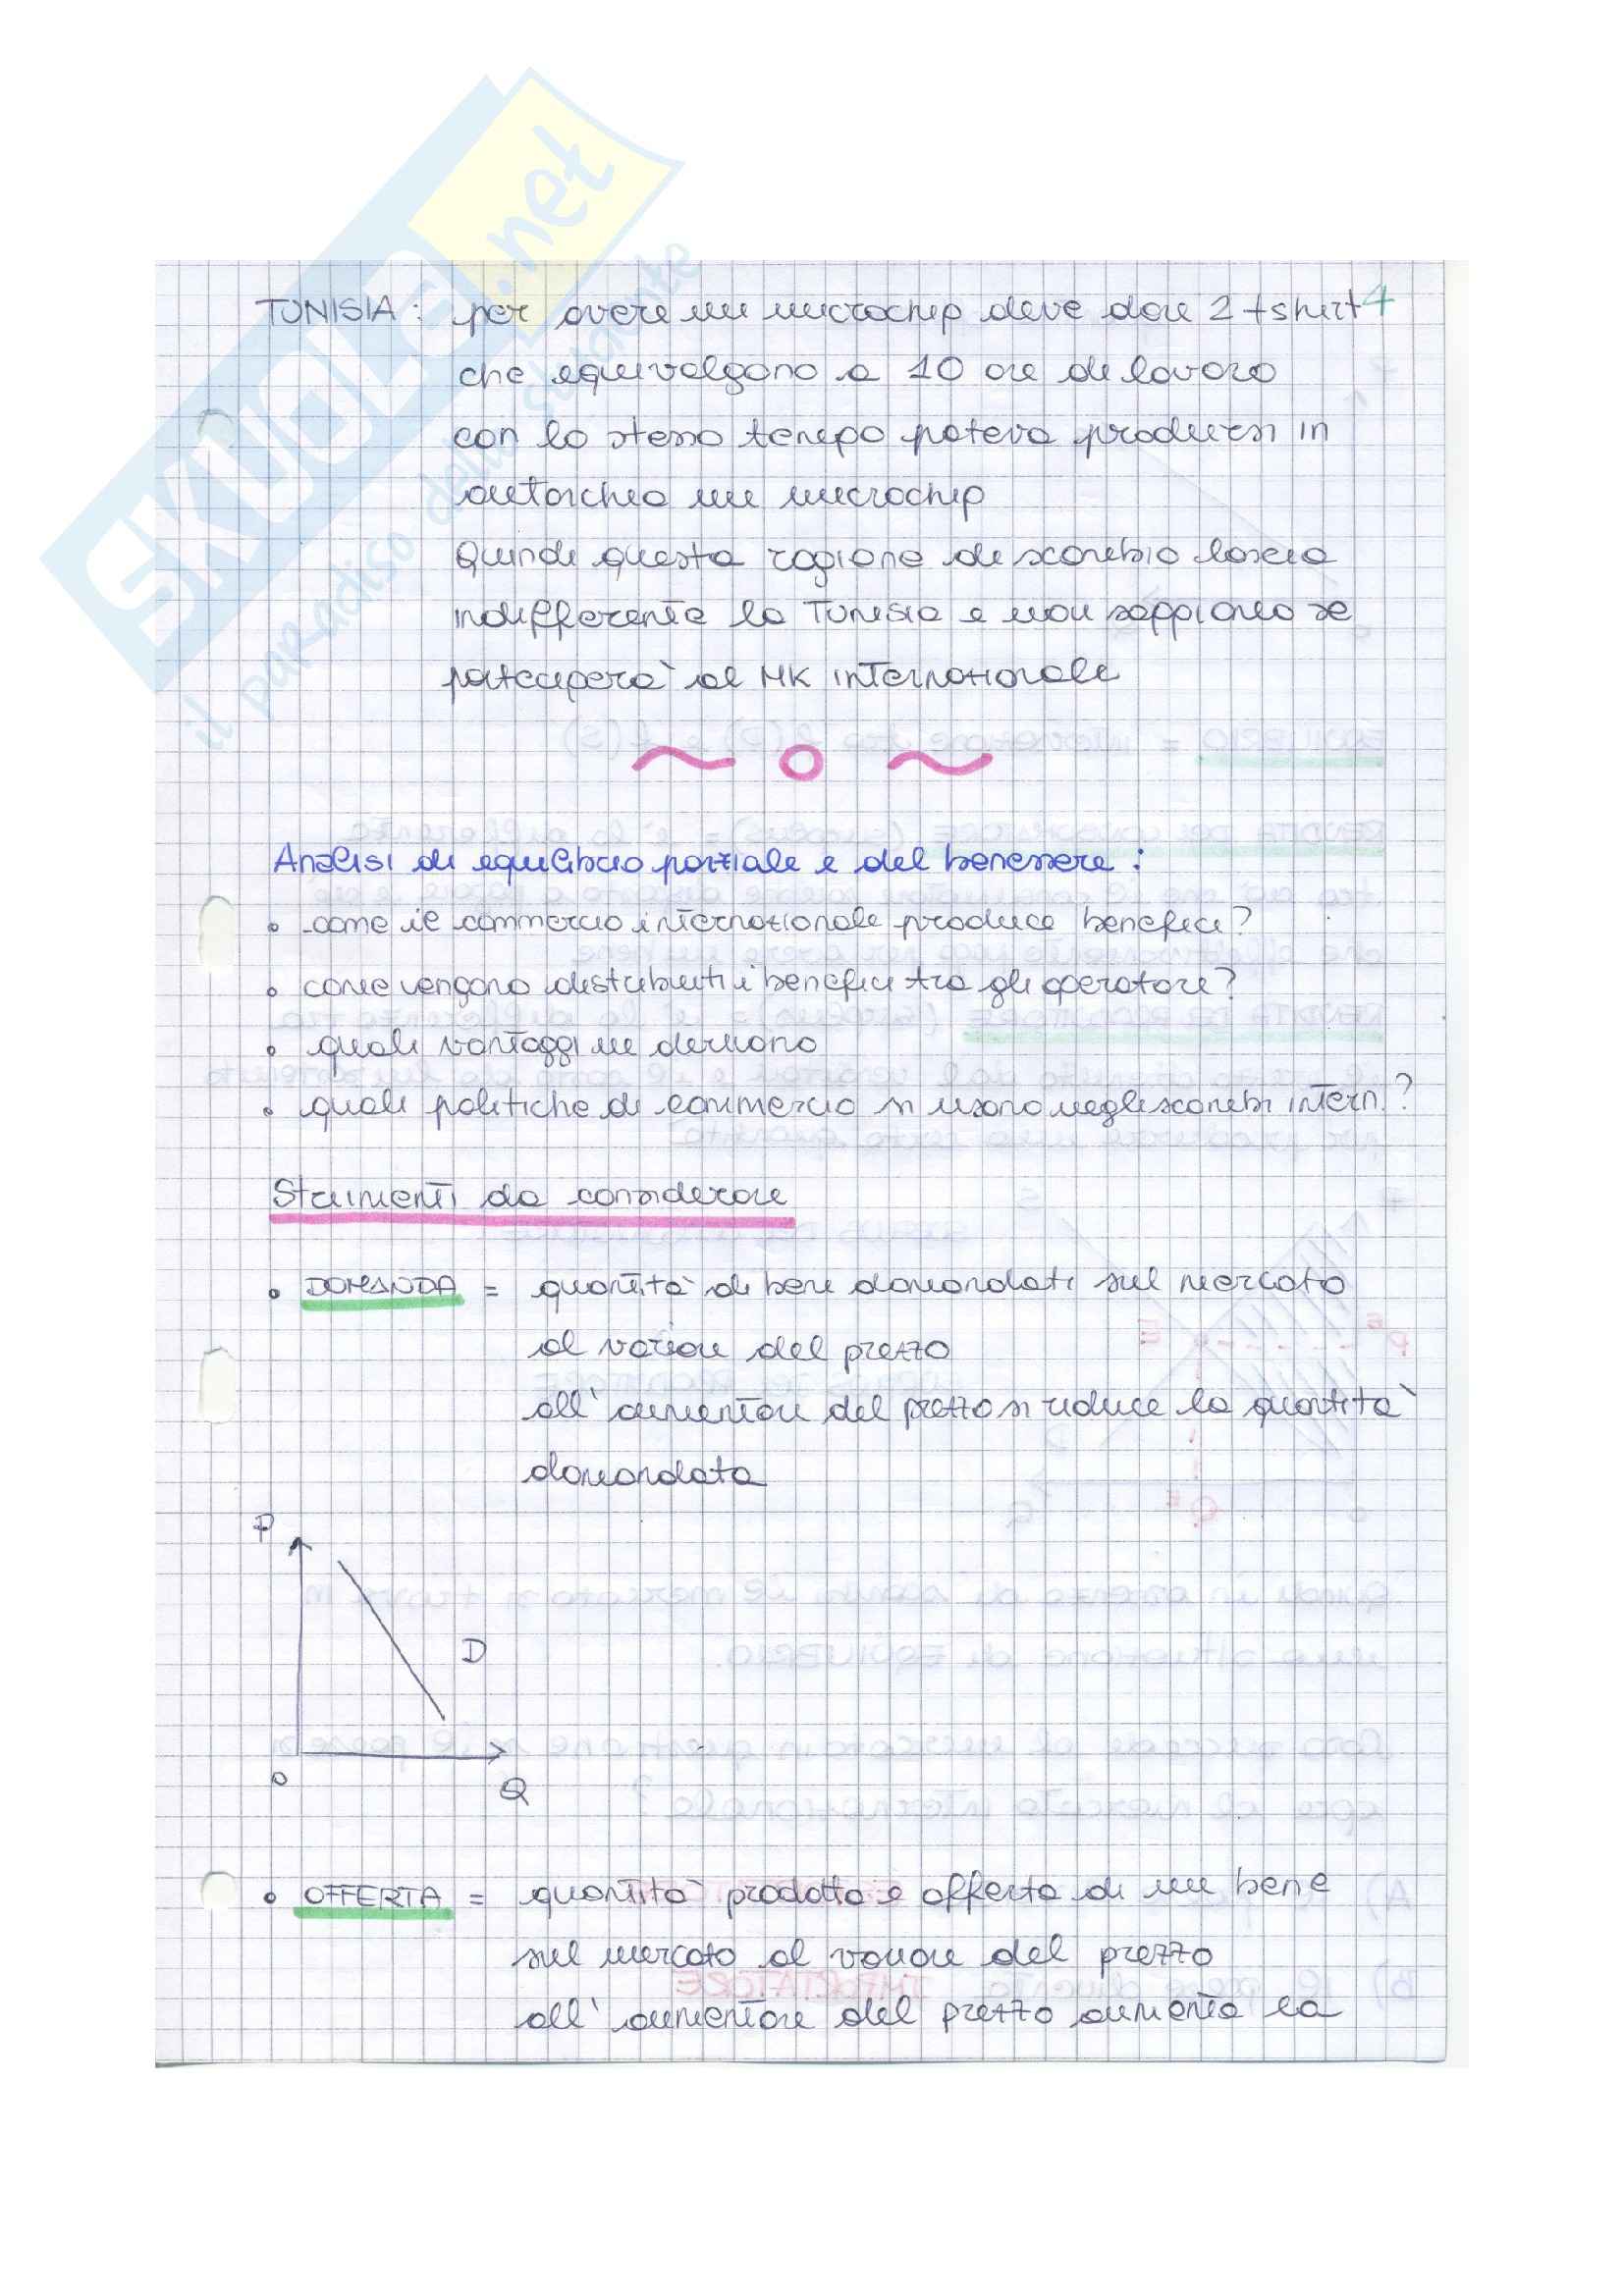 SKUOLA.net
il paradiso dello studente
4
TUNISIA: per avere un microchip deve dare 2 tshirt
che equivalgono a 10 ore di lavoro
con lo stesso tempo poteva prodursi in
autarchia un microchip
Quindi questa ragione di scambio lascia
indifferente la Tunisia e non sappiamo se
parteciperà al MK internazionale
Analisi di equilibrio parziale e del benessere:
• come il commercio internazionale produce benefici?
• come vengono distribuiti i benefici tra gli operatori?
• quali vantaggi ne derivano
• quali politiche di commercio si usano negli scambi intern.?
Strumenti da considerare
• DOMANDA = quantità di beni domandati sul mercato
al variare del prezzo
all'aumentare del prezzo si riduce la quantità
domandata
P
D
O
Q
• OFFERTA = quantità prodotta e offerta di un bene
sul mercato al variare del prezzo
all'aumentare del prezzo aumenta la